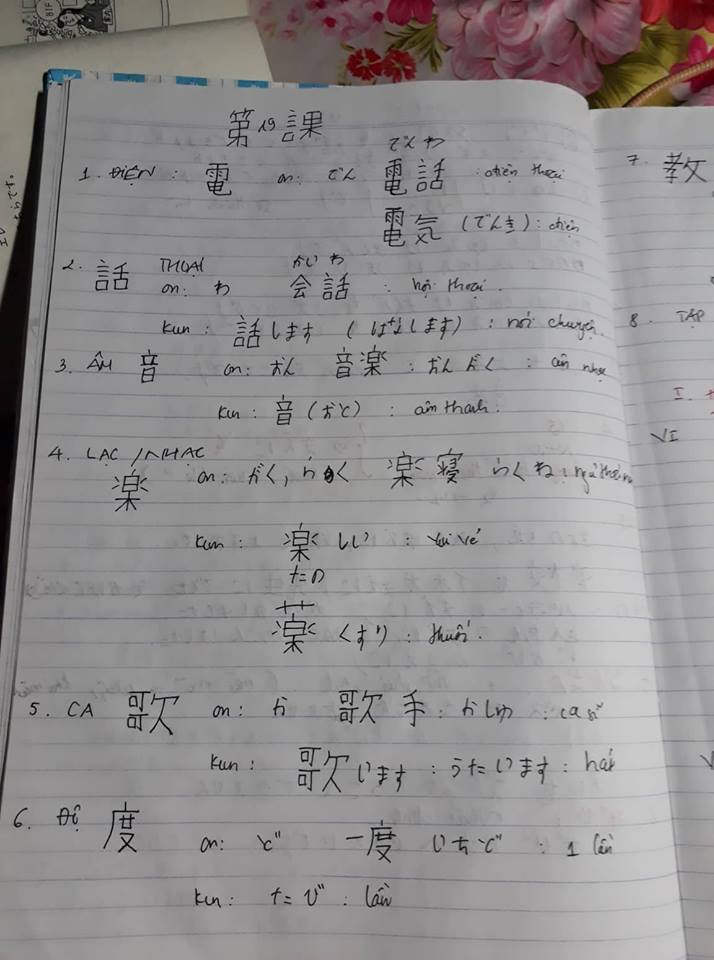 第19課
でんわ
1. ĐIỆN : 電 on: でん 電話 : điện thoại
電気 (でんき) : điện
2. 話 THOẠI かい わ
on: わ 会話 : hội thoại.
kun: 話します (はなします) : nói chuyện.
3. ÂM 音 on: おん 音楽 : おんがく : âm nhạc
kun: 音 (おと) : âm thanh.
4. LẠC / NHẠC
楽 on: がく, らく 楽寝 らくね : ngủ
kun: 楽しい : vui vẻ
たの
薬 くすり : thuốc.
5. CA 歌 on: か 歌手 : かしゅ : ca sĩ
kun: 歌います : うたいます : hát
6. ĐỘ 度 on: ど 一度 いちど : 1 lần
kun: たび : lần
7. 教
8. TẬP
I.
VI